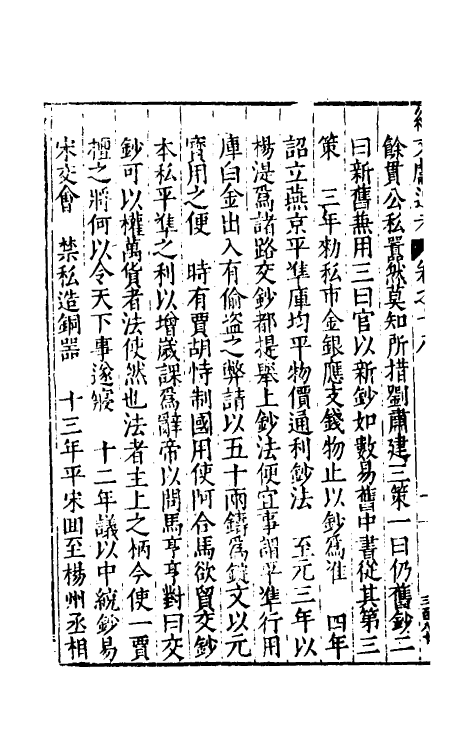 餘貫公私囂然莫知所措劉肅建三策一曰仍舊鈔二
曰新舊兼用三曰官以新鈔如數易舊中書從其第三
策　三年勑私市金銀應支錢物止以鈔爲准　四年
詔立燕京平準庫均平物價通利鈔法　至元三年以
楊湜爲諸路交鈔都提舉上鈔法便宜事謂平準行用
庫白金出入有偷盗之弊請以五十兩鑄爲錠文以元
寳用之便　時有賈胡恃制國用使阿合馬欲貿交鈔
本私平準之利以增歲課爲辭帝以問馬亨亨對曰交
鈔可以權萬貨者法使然也法者主上之柄今使一賈
擅之將何以令天下事遂寢　十二年議以中統鈔易
宋交會　禁私造銅器　十三年平宋回至楊州丞相